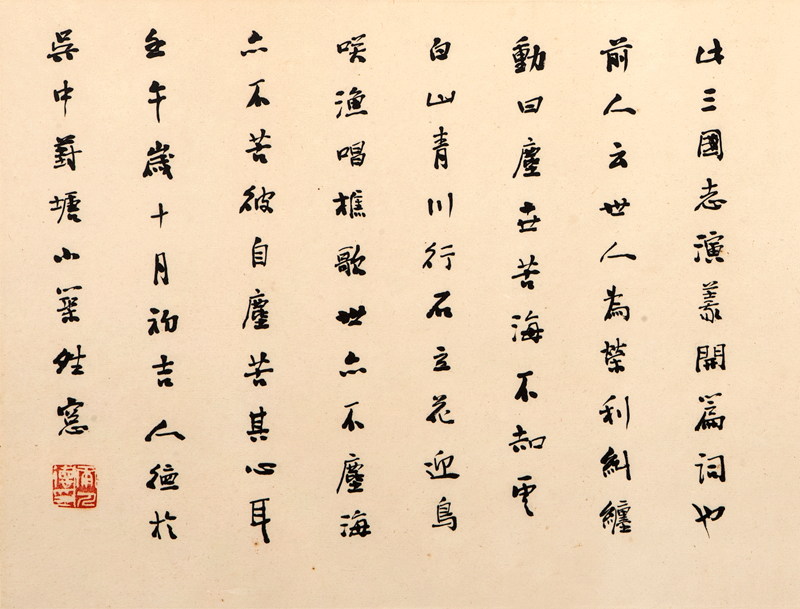 此三國志演義開篇詞也
前人云世人為榮利糾纏
動曰塵世苦海不知雲
白山青川行石立花迎鳥
咲漁唱樵歌世亦不塵海
亦不苦彼自塵苦其心耳
壬午歲十月初吉人德於
吳中葑塘小築繼窗